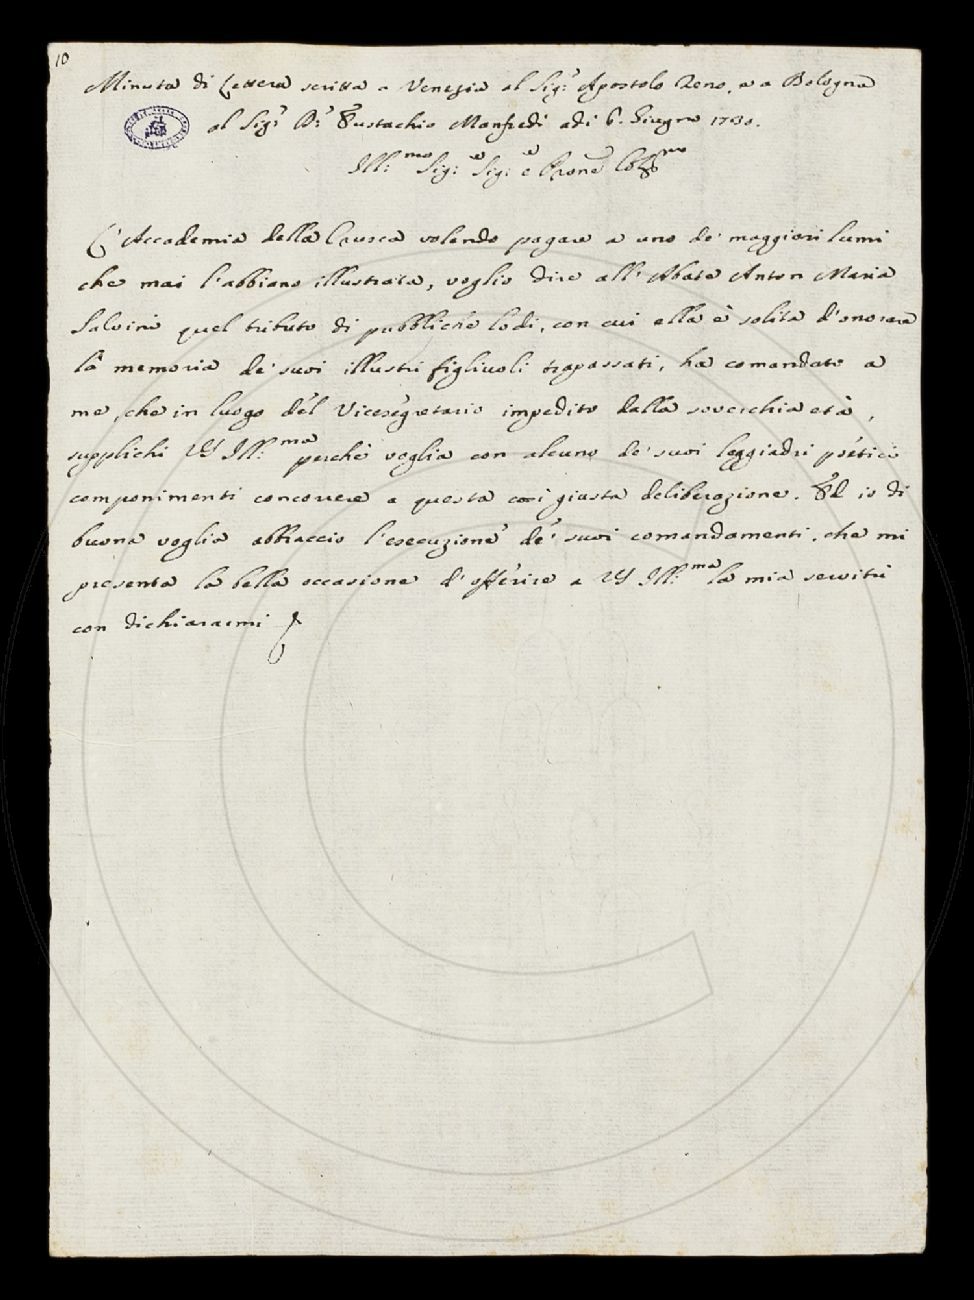 10
Minuta di Lettera scritta a Venezia al Sig.r Apostolo Zeno, e a Bologna
al Sig.r D.r Eustachio Manfredi adi 6. Giugno 1730.
Ill.mo Sig.e Sig.e e Prone Col.mo
L'Accademia della Crusca volendo pagare a uno de' maggiori lumi
che mai l'abbiano illustrata, voglio dire all'Abate Anton Maria
Salvini quel tributo di pubbliche lodi, con cui ella è solita d'onorare
la memoria de' suoi illustri figliuoli trapassati, ha comandato a
me, che in luogo del Vicesegretario impedito dalla soverchia età,
supplichi VS Ill.ma perchè voglia con alcuno de' suoi leggiadri poetici
componimenti concorrere a questa così giusta deliberazione. Ed io di
buona voglia abbraccio l'esecuzione de' suoi comandamenti, che mi
presenta la bella occasione d'offerire a VS Ill.ma la mia servitù
con dichiararmi